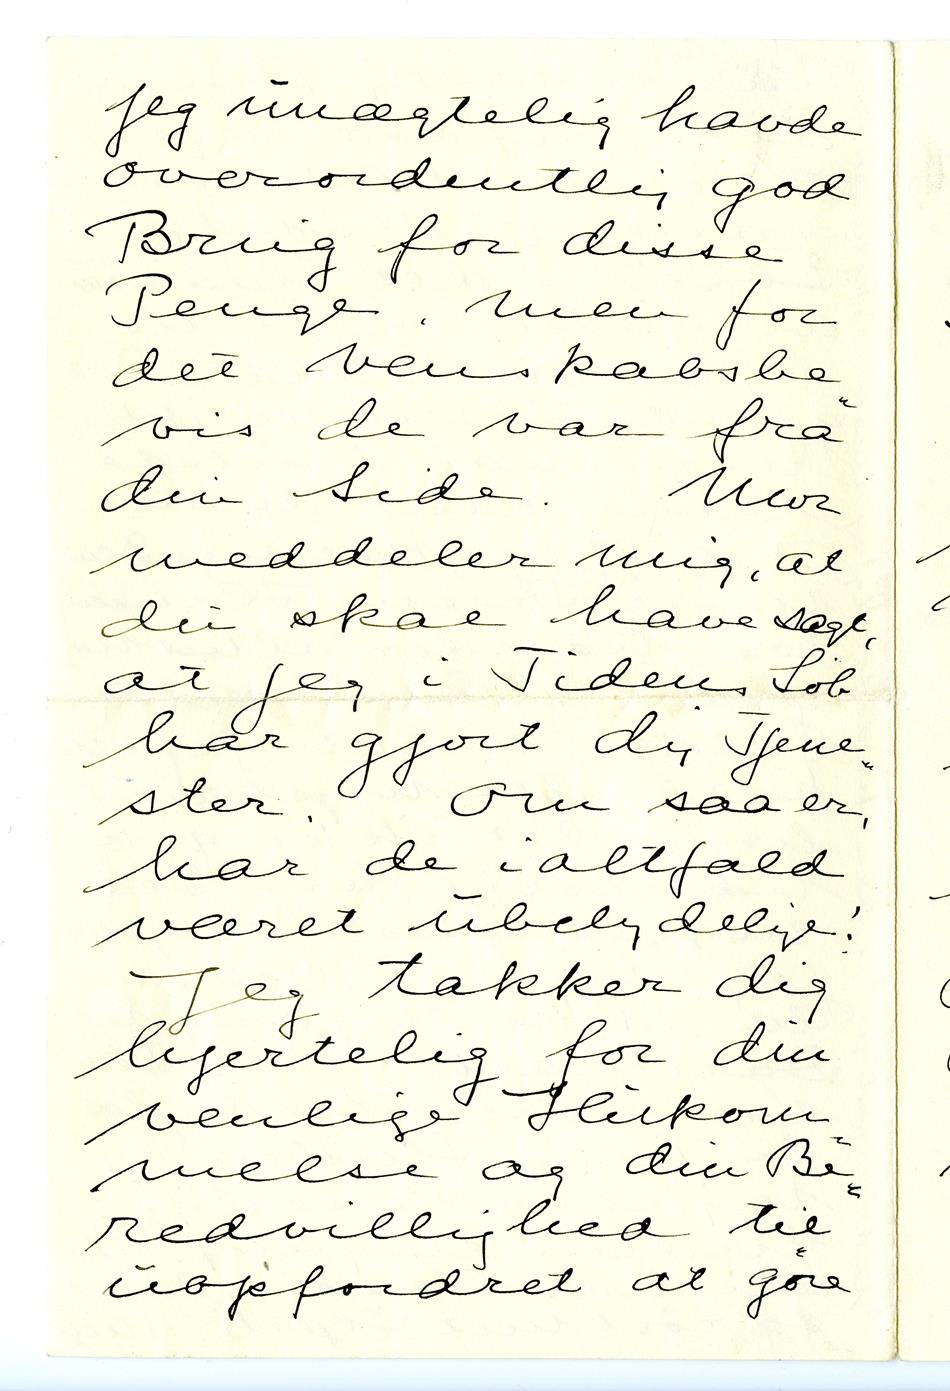 jeg unægtelig havde
overordentlig god
Brug for disse
Penge, men for
det Venskabsbe„
vis de var fra
din Side. Mor
meddeler mig, at
du skal have sagt,
at jeg i Tidens Løb
har gjort dig Tjene„
ster. Om saa er,
har de ialtfald
været ubetydelige!
Jeg takker dig
hjertelig for din
venlige Hukom„
melse og din Be„
redvillighed til
uopfordret at göre